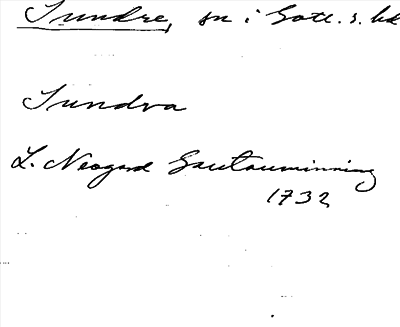 Sundre, sn i Gotl. s. hd
Sundra
L. Neogard Gautauminning
1732